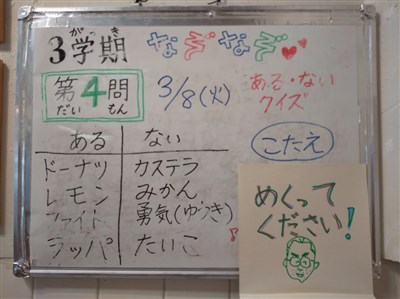 3学期
がっき
なぞなぞ
第4問
だい もん
3/8(火)
ある・ない
クイズ
ある ない
ドーナツ カステラ
レモン みかん
ファイト 勇気(ゆうき)
ラッパ たいこ
こたえ
めくって
ください!